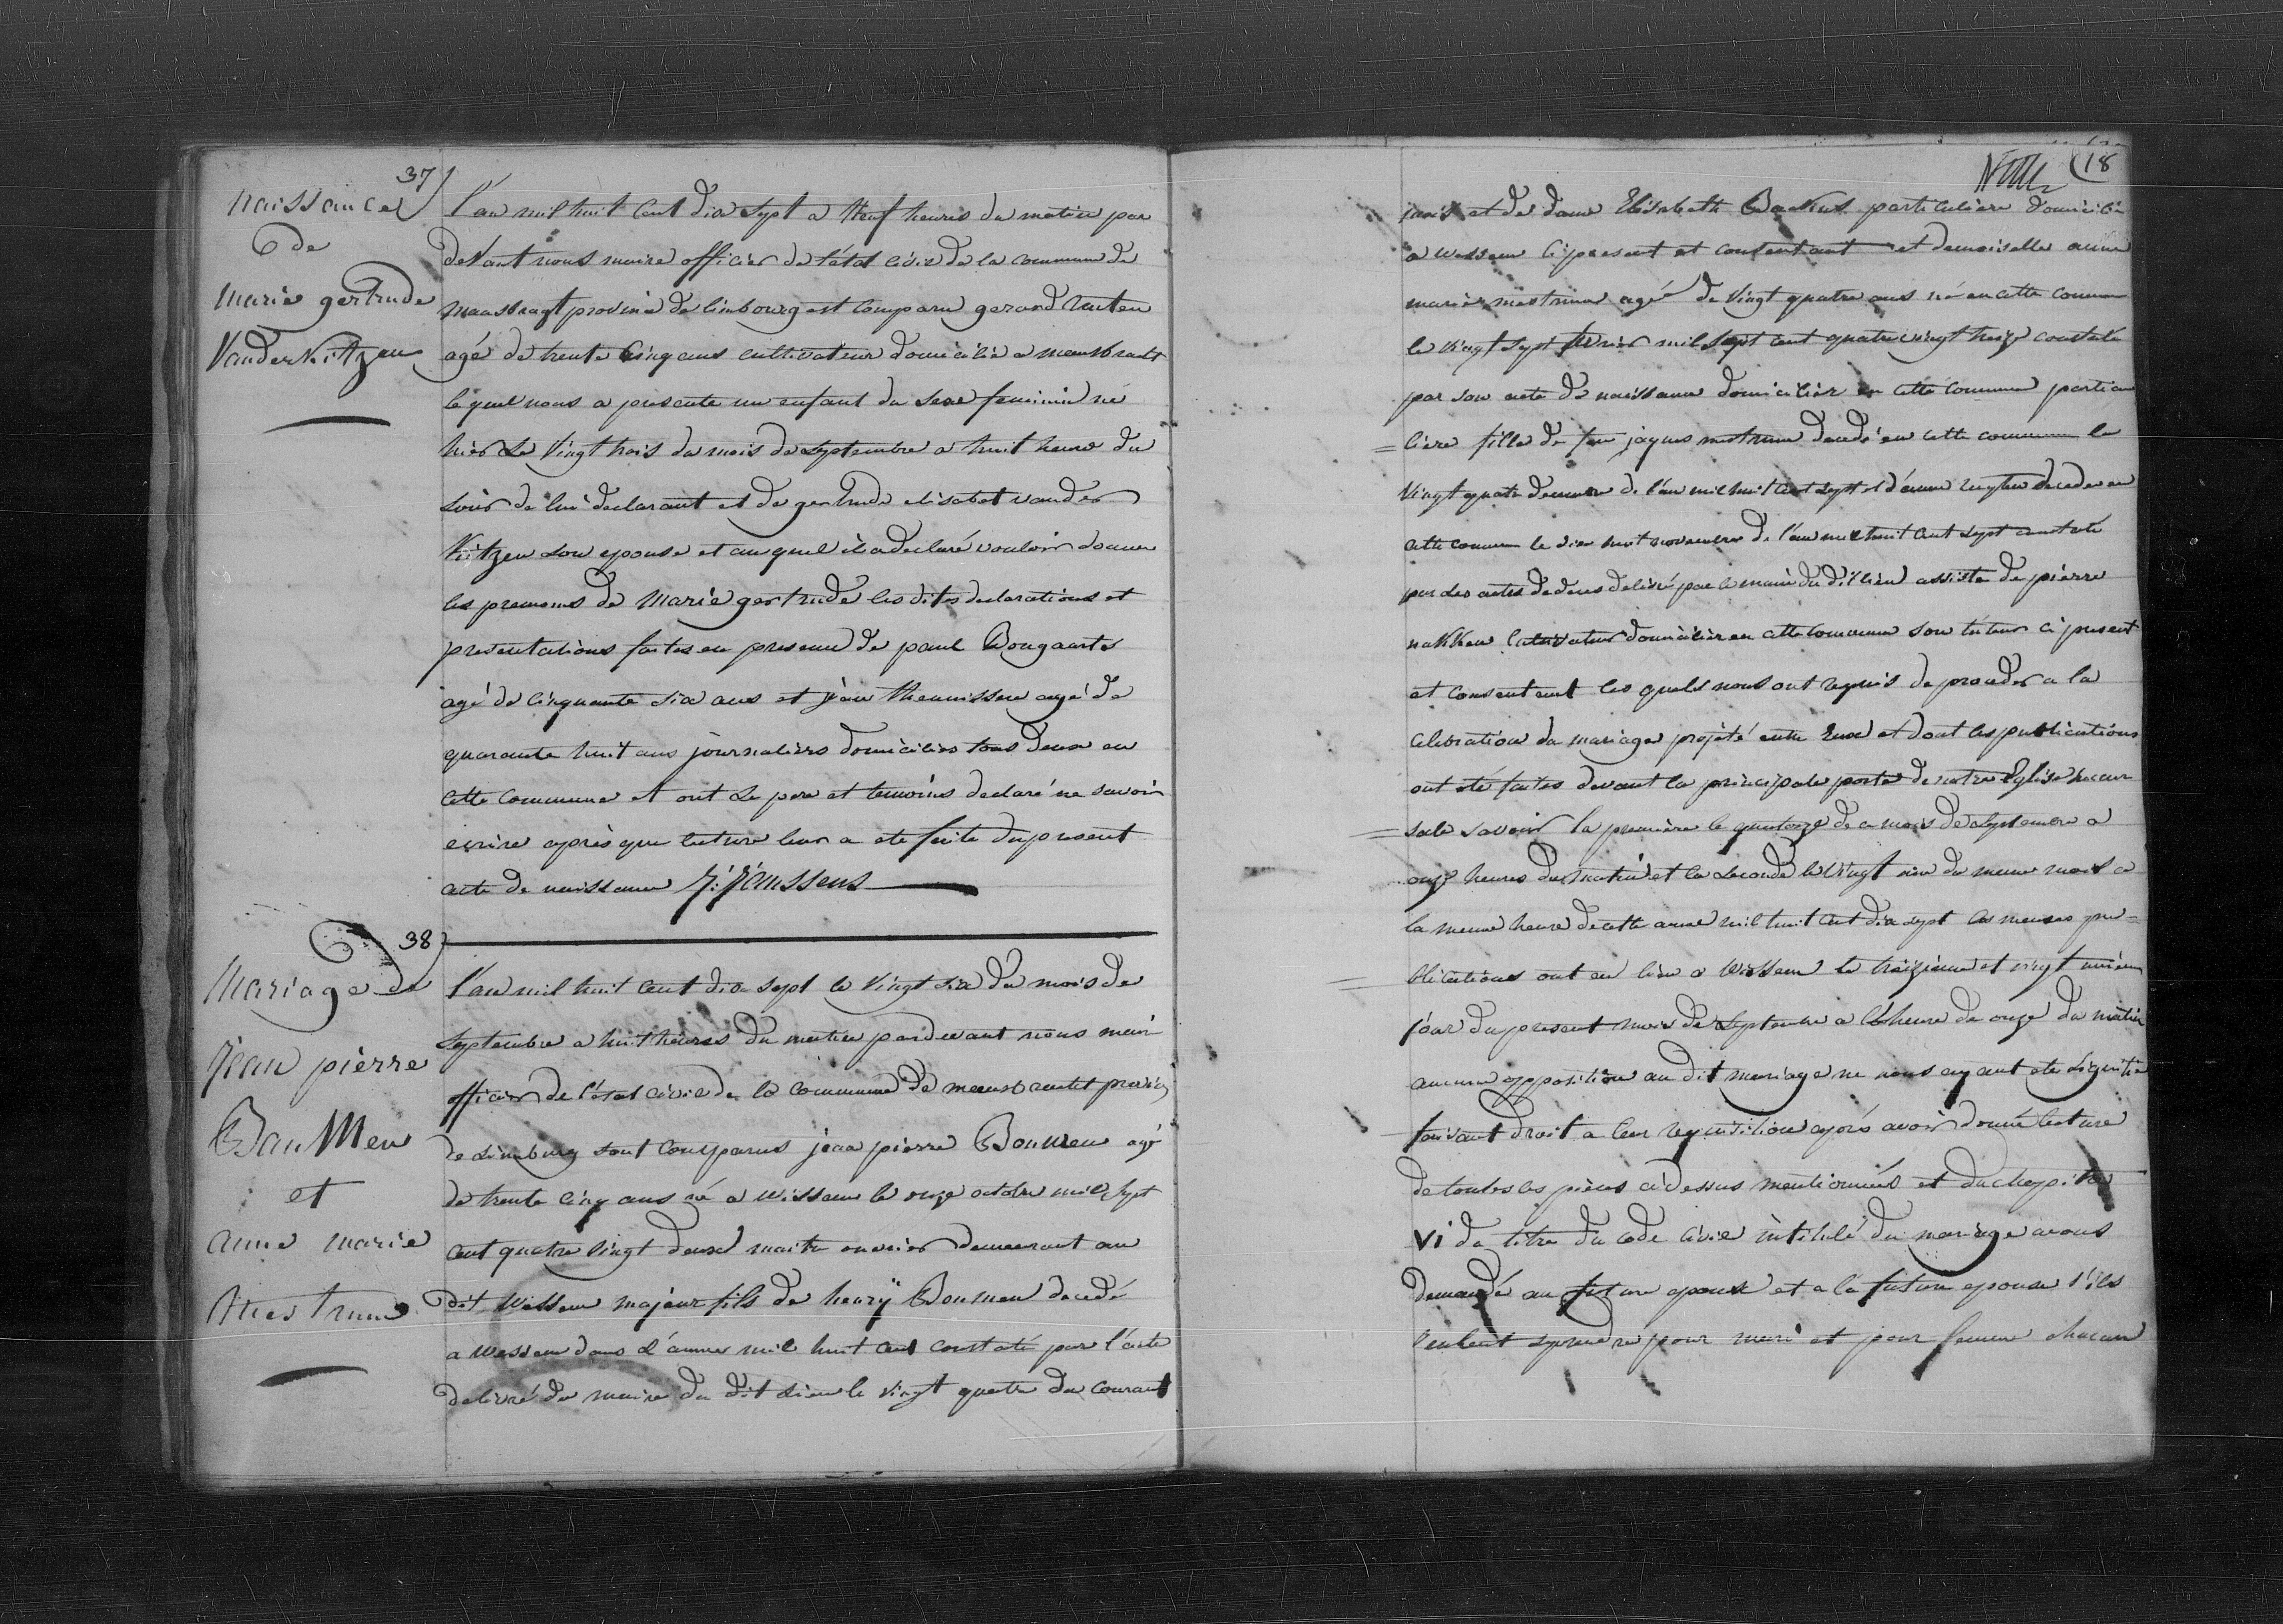 37
naissance
de
marie gertrude
Vanderkitzen
l'an mil huit cent dix sept a Neuf heures du matin par
devant nous maire officier de l'état civil de la commune de
maasbragt province de limbourg est comparu gerard
agé de trente cinq ans cultivateur domicilié a maasbracht
lequel nous a presenté un enfant du sexe feminin né
hier le Vingt trois du mois de septembre a huit heure du
soir de lui declarant et de gertrude elisabet vander
kitzen son epouse et au quel il a declaré vouloir donner
les prenoms de Marie gertrude les dites declarations et
presentations faites en presence de paul Bongaarts
agé de cinquante six ans et jean theunissen agé de
quarante huit ans journaliers domiciliés tous deux en
cette commune et ont le pere et temoins declaré ne savoir
ecrire après que lecture leur a été faite du present
acte de naissance J: Janssens
38
Mariage de
Jean pierre
Baumen
et
anne marie
Mestrum
l'an mil huit cent dix sept le Vingt six du mois de
Septembre a huit heures du matin pardevant nous mair
officier de l'état civil de la commune de maasbracht provinc
de Limburg sont comparus jean pierre Boumen agé
de trente cinq ans né a Wissem le onze octobre mil sept
cent quatre vingt deux maitre ouvrier demeurant au
dit Wessem majeur fils de henry Boumen decedé
a Wessem dans l'année mil huit cent constaté par l'acte
delivré du maire du dit lieu le Vingt quatre du courant
18
jaris et de dame Elisabeth Backus particulière domicilié
a wessem ci present et consentant et demoiselle anne
marie mestrum agé de Vingt quatre ans né en cette commun
le vingt sept fevrier mil sept cent quatre vingt treize constaté
par son acte de naissance domicilier en cette commune particu
= lière fille de feu jaques mestrum decedé en cette commune le
Vingt quatre de l'an mil huit cent sept et d'anne decedee en
cette commune le dix huit novembre de l'an mil huit cent sept constaté
par les actes de deces delivré par le maire du dit lieu assisté de pierre
nakken cultivateur domicilier en cette commune son tuteur ci present
et consentant les quels nous ont requis de proceder a la
celebration du mariage projeté entre Eux et dont les publications
ont été faites devant la principale porte de notre Eglise succur
= sale savoir la première le quatorze de ce mois de septembre a
onze heures du matin et la seconde le Vingt un du meme mois a
la meme heure de cette anné mil huit cent dix sept les memes pu=
= blications ont eu lieu a Wissem le treizieme et vingt unieme
jour du present mois de septembre a l'heure de onze du matin
aucune opposition au dit mariage ne nous ayant eté signifié
faisant droit a leur requisition après avoir donné lecture
de toutes les pièces ci dessus mentionnés et du chapitre
VI du titre du code civil intitulé du mariage avons
demandé au future epoux et a la future epouse s'ils
veulent se prendre pour mari et pour femme chacun